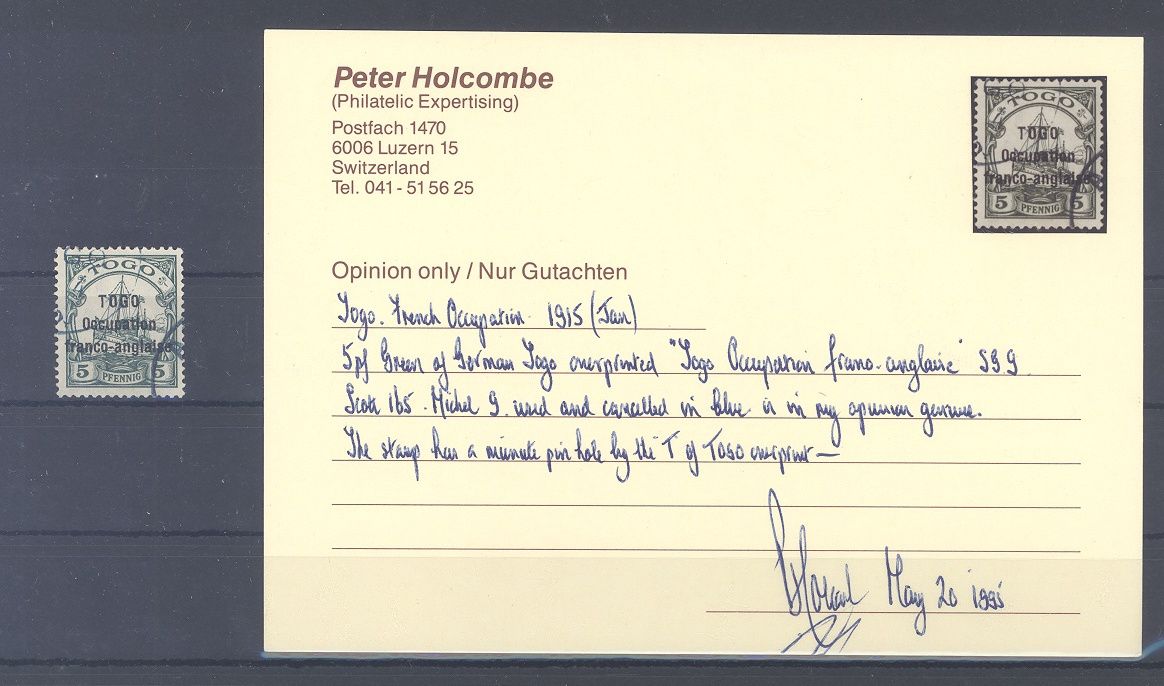 TOGO
TOGO
Occupation
franco-anglaise
5 PFENNIG 5
Peter Holcombe
(Philatelic Expertising)
Postfach 1470
6006 Luzern 15
Switzerland
Tel. 041 - 51 56 25
TOGO
TOGO
Occupation
franco-anglaise
5 PFENNIG 5
Opinion only / Nur Gutachten
Togo. French Occupation 1915 (Jan)
5pf Green of German Togo overprinted "Togo Occupation franco-anglaise" SG 9
Scott 165. Michel 9. used and cancelled in blue is in my opinion genuine.
The stamp has a minute pin hole by the T of TOGO overprint —
May 20